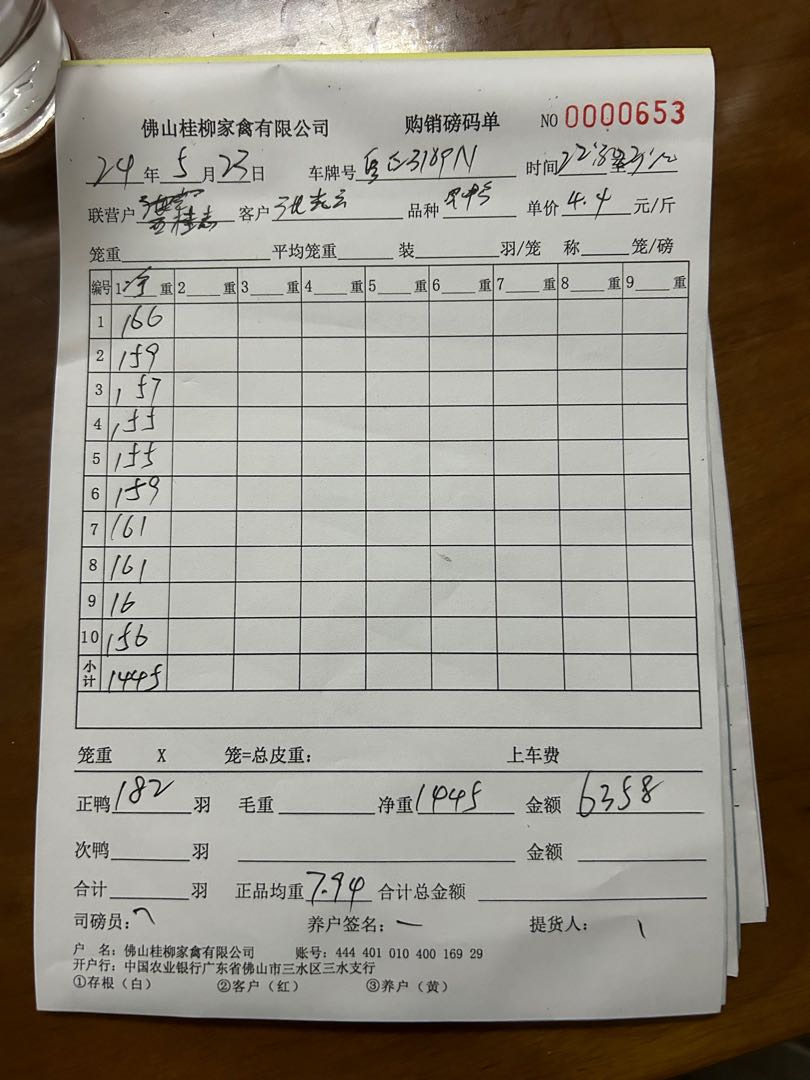 佛山桂柳家禽有限公司 购销磅码单 NO 0000653
24年5月23日 车牌号 时间 至
联营户 客户 品种 单价4.4元/斤
笼重 平均笼重 装 羽/笼 称 笼/磅
编号 1净重 2重 3重 4重 5重 6重 7重 8重 9重
1 166
2 159
3 157
4 155
5 155
6 159
7 161
8 161
9 16
10 156
小计 1445
笼重 X 笼=总皮重： 上车费
正鸭182羽 毛重 净重1445 金额6358
次鸭 羽 金额
合计 羽 正品均重7.94 合计总金额
司磅员： 养户签名： 提货人：
户 名：佛山桂柳家禽有限公司 账号：444 401 010 400 169 29
开户行：中国农业银行广东省佛山市三水区三水支行
①存根（白） ②客户（红） ③养户（黄）